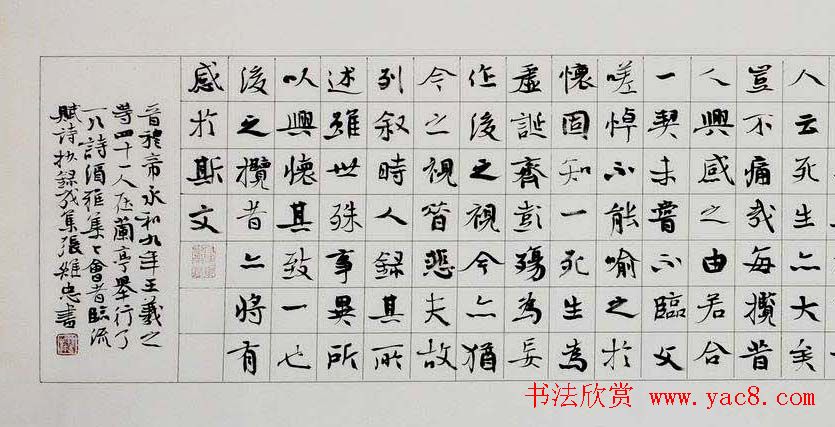 人云死生亦大矣
豈不痛哉每攬昔
人興感之由若合
一契未嘗不臨文
嗟悼不能喻之於
懷固知一死生為
虛誕齊彭殤為妄
作後之視今亦猶
今之視昔悲夫故
列敘時人錄其所
述雖世殊事異所
以興懷其致一也
後之攬昔亦將有
感於斯文
晉穆帝永和九年王羲之
等四十一人在蘭亭舉行了
一次詩酒雅集會者臨流
賦詩抄錄成集張維忠書
书法欣赏 www.yac8.com